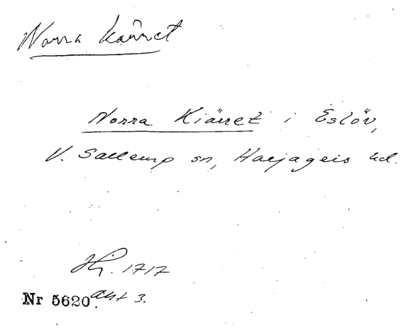 Norra kärret
Norra Kiärret i Eslöv,
V. Sallerup sn, Harjagers hd.
Hj. 1717
Nr 5620. akt 3.